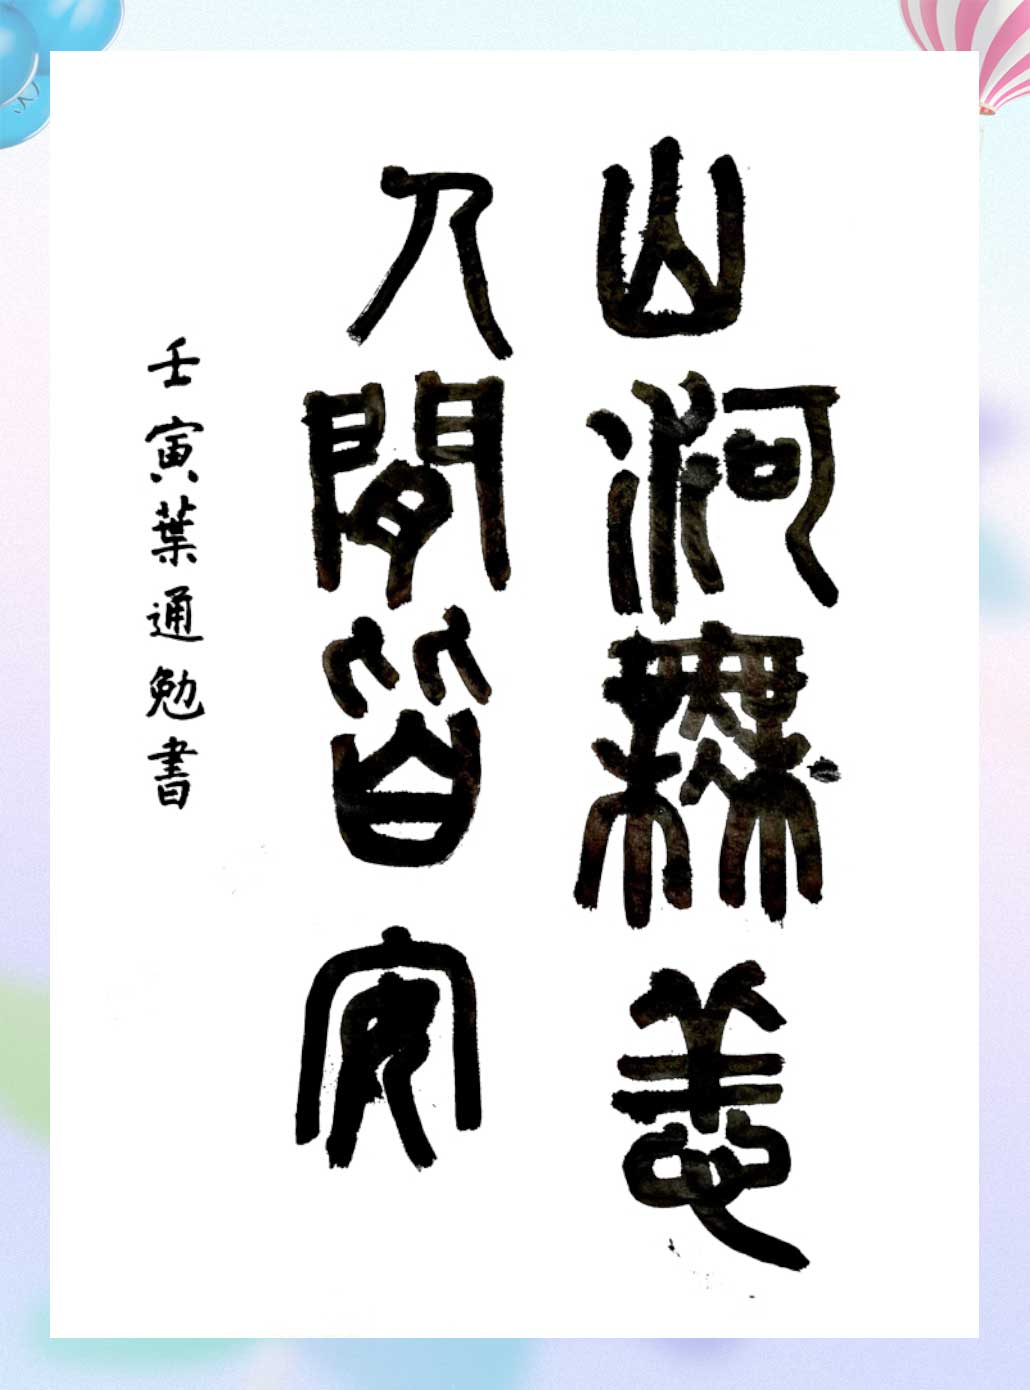 山河無恙
人間皆安
壬寅葉通勉書